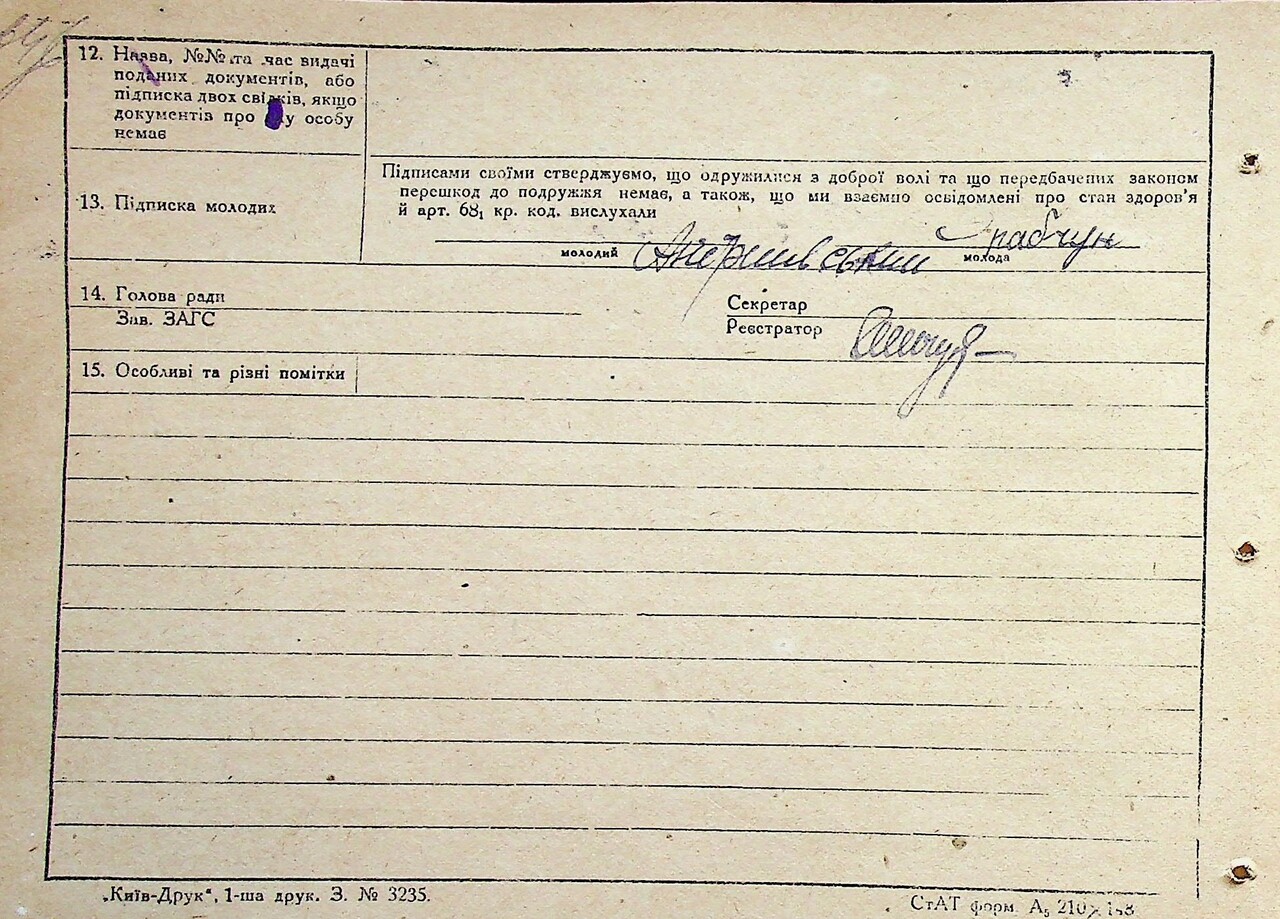 12. Назва, №№ та час видачі
поданих документів, або
підписка двох свідків, якщо
документів про цю особу
немає
13. Підписка молодих
Підписами своїми стверджуємо, що одружилися з доброї волі та що передбачених законом
перешкод до подружжя немає, а також, що ми взаємно освідомлені про стан здоров'я
й арт. 68₁ кр. код. вислухали
молодий
молода Грабчун
14. Голова ради
Зав. ЗАГС
Секретар
Реєстратор
15. Особливі та різні помітки
„Київ-Друк“, 1-ша друк. З. № 3235.
СтАТ форм. А₅ 210×148